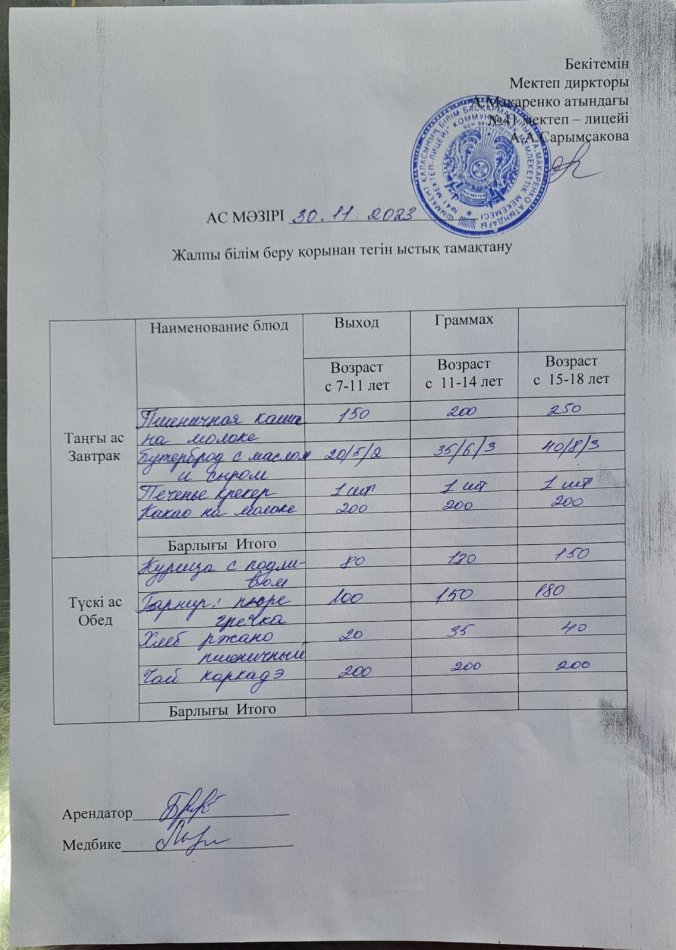 Бекітемін
Мектеп диркторы
А.Макаренко атындағы
№41 мектеп – лицейі
А.А.Сарымсакова
АС МӘЗІРІ 30.11.2023
Жалпы білім беру қорынан тегін ыстық тамақтану
Наименование блюд Выход Граммах
Возраст Возраст Возраст
с 7-11 лет с 11-14 лет с 15-18 лет
Таңғы ас
Завтрак
Пшеничная каша 150 200 250
на молоке
Бутерброд с маслом 20/5/2 35/6/3 40/8/3
и сыром
Печенье крекер 1 шт 1 шт 1 шт
Какао на молоке 200 200 200
Барлығы Итого
Түскі ас
Обед
Курица с подли- 80 120 150
вом
Гарнир: пюре 100 150 180
гречка
Хлеб ржано 20 35 40
пшеничный
Чай каркадэ 200 200 200
Барлығы Итого
Арендатор
Медбике